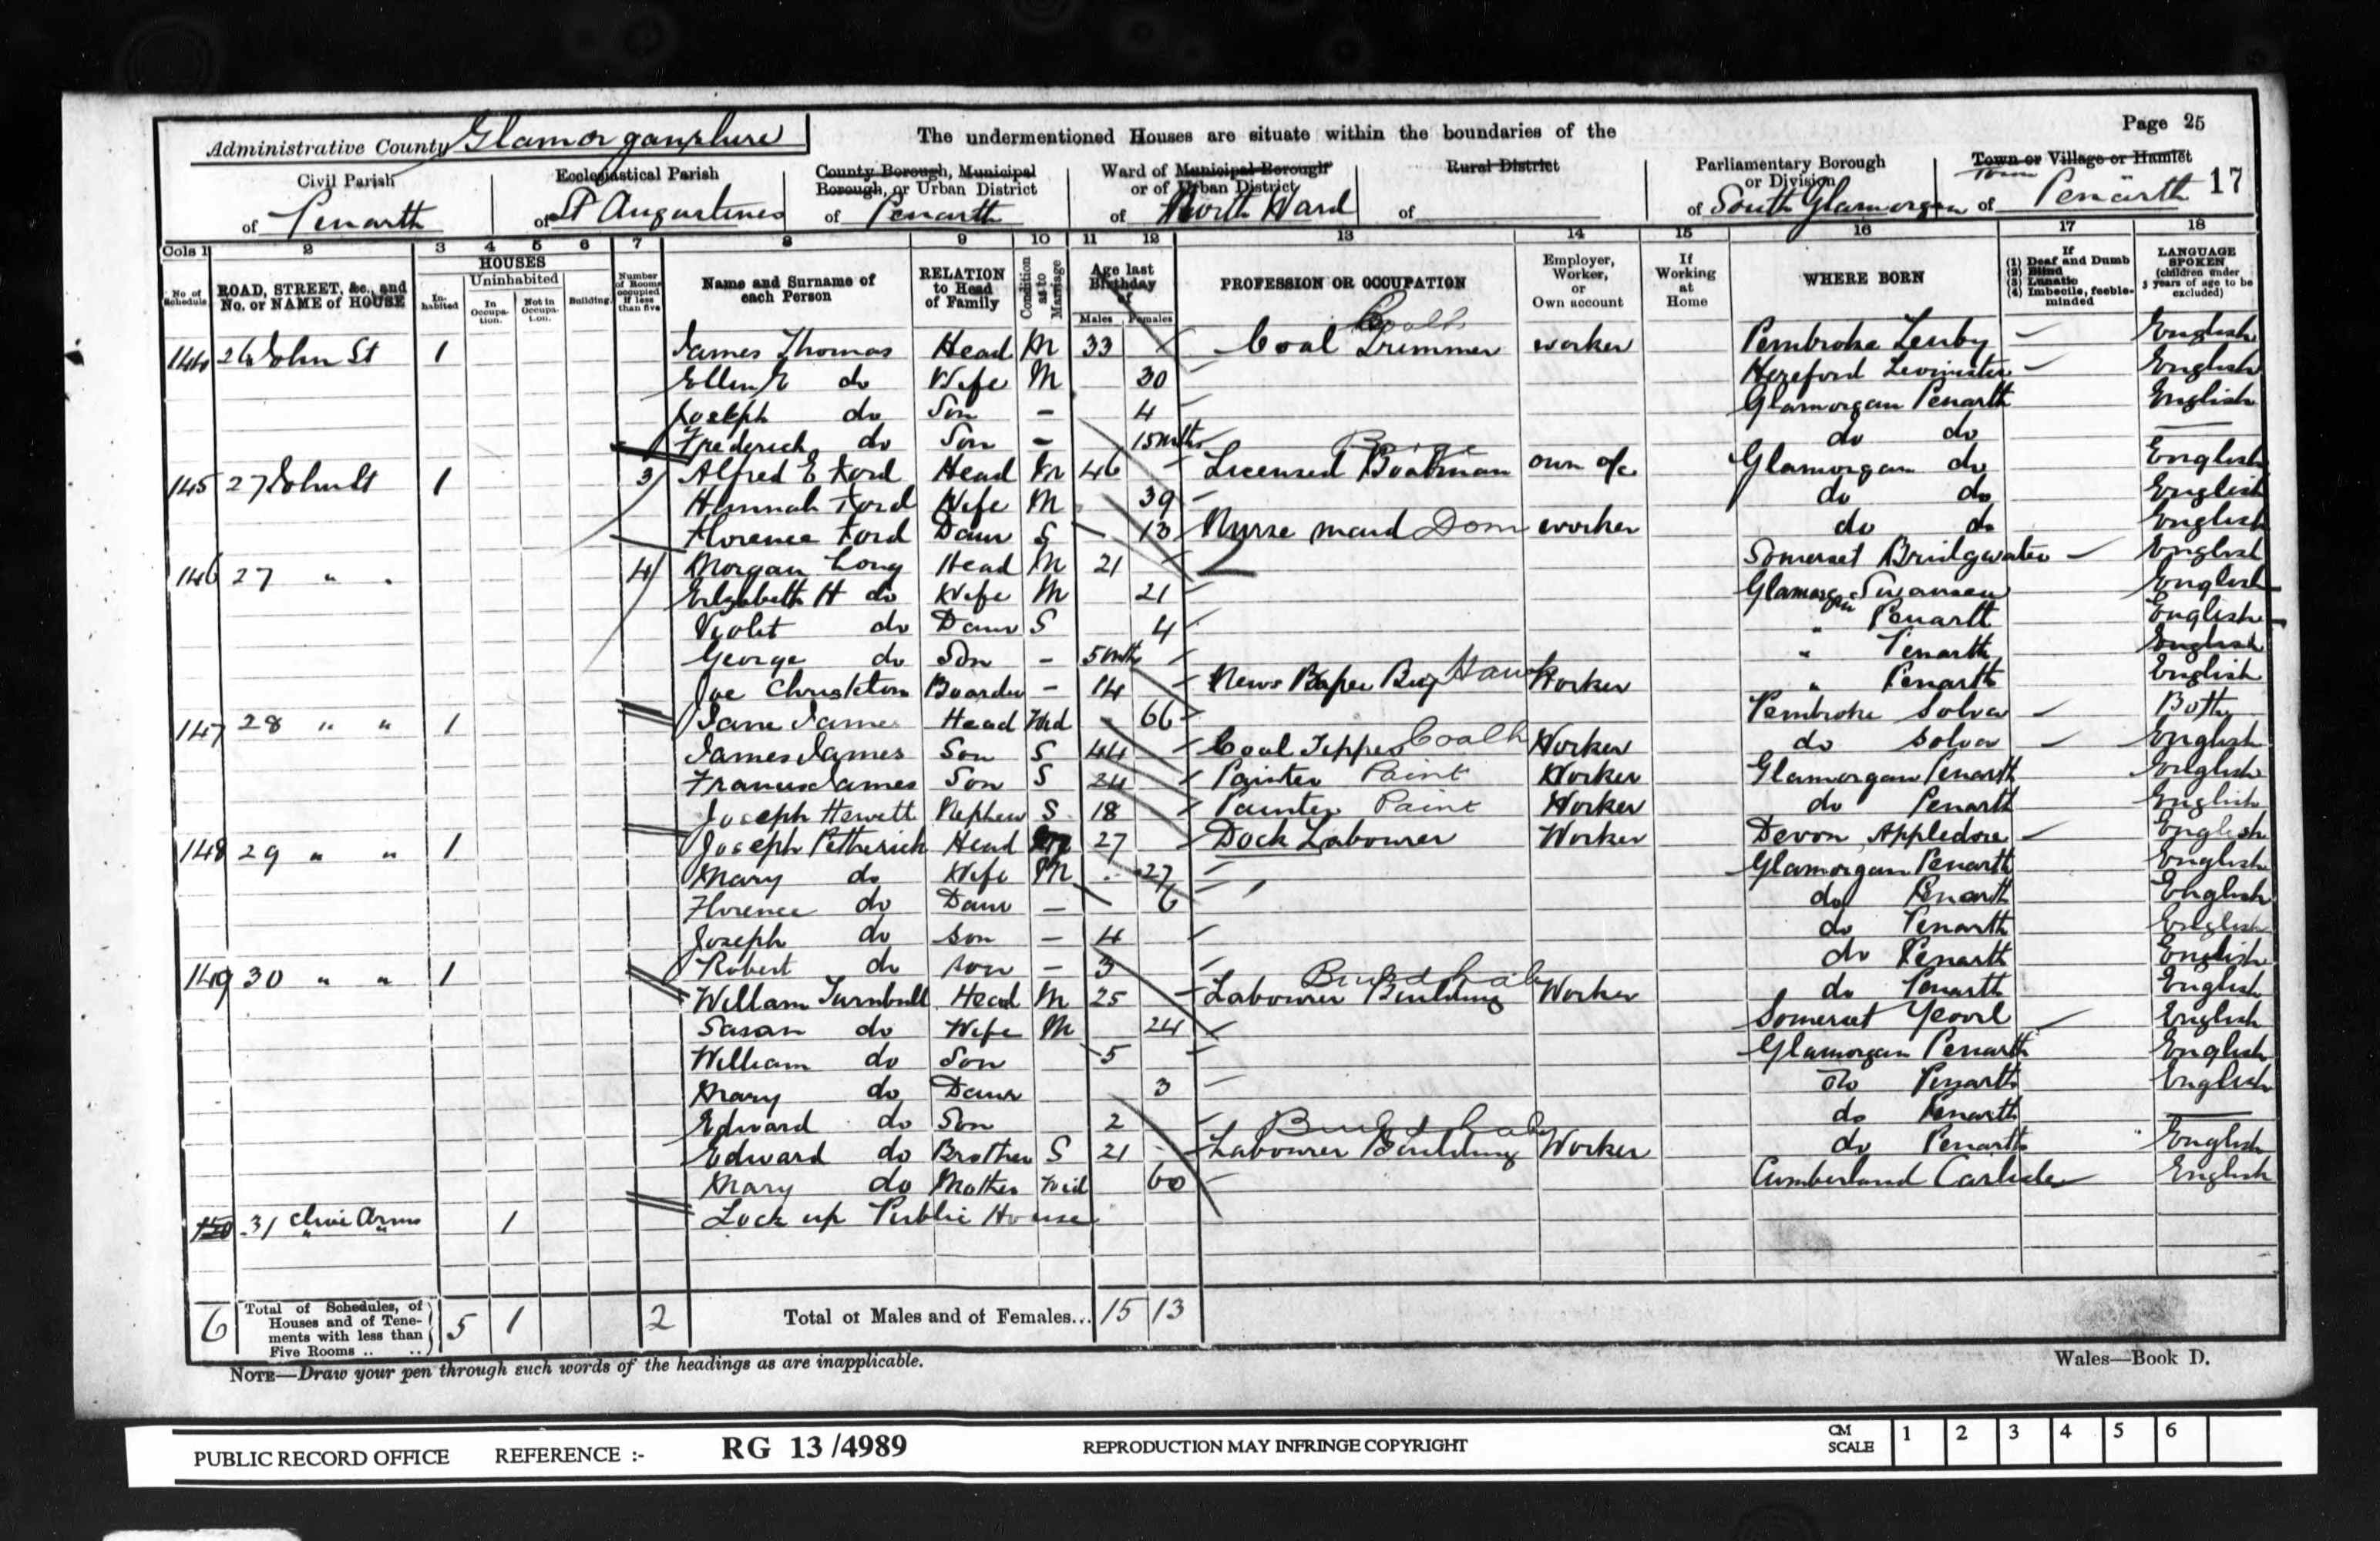 Administrative County Glamorganshire
The undermentioned Houses are situate within the boundaries of the
Page 25
17
Civil Parish of Penarth
Ecclesiastical Parish of St Augustines
County Borough, Municipal Borough, or Urban District of Penarth
Ward of Municipal Borough or of Urban District of North Ward
Rural District of
Parliamentary Borough or Division of South Glamorgan
Town or Village or Hamlet Town of Penarth
Cols 1 2 3 4 5 6 7 8 9 10 11 12 13 14 15 16 17 18
No of Schedule
ROAD, STREET, &c., and No. or NAME of HOUSE
HOUSES
Inhabited
Uninhabited
In Occupation.
Not in Occupation.
Building.
Number of Rooms occupied if less than five
Name and Surname of each Person
RELATION to Head of Family
Condition as to Marriage
Age last Birthday of
Males Females
PROFESSION OR OCCUPATION
Employer, Worker, or Own account
If Working at Home
WHERE BORN
If (1) Deaf and Dumb (2) Blind (3) Lunatic (4) Imbecile, feeble-minded
LANGUAGE SPOKEN (children under 3 years of age to be excluded)
144 26 John St 1 James Thomas Head M 33 Coal Trimmer worker Pembroke Tenby English
Ellen E do Wife M 30 Hereford Leominster English
Joseph do Son - 4 Glamorgan Penarth English
Frederick do Son - 15 mths do do
145 27 John St 1 3 Alfred E Ford Head M 46 Licensed Boatman Barge own a/c Glamorgan do English
Hannah Ford Wife M 39 do do English
Florence Ford Daur S 13 Nurse maid Dom worker do do English
146 27 " " 4 Morgan Long Head M 21 Somerset Bridgwater English
Elizabeth H do Wife M 21 Glamorgan Swansea English
Violet do Daur S 4 " Penarth English
George do Son - 5 mths " Penarth English
Joe Boarder - 14 News Paper Boy Hawk Worker " Penarth English
147 28 " " 1 Jane James Head Wd 66 Pembroke Solva Both
James James Son S 44 Coal Tipper Coal h Worker do Solva English
Francis James Son S 24 Painter Paint Worker Glamorgan Penarth English
Joseph Hewett Nephew S 18 Painter Paint Worker do Penarth English
148 29 " " 1 Joseph Petherick Head M 27 Dock Labourer Worker Devon Appledore English
Mary do Wife M 27 Glamorgan Penarth English
Florence do Daur - 6 do Penarth English
Joseph do son - 4 do Penarth English
Robert do son - 3 do Penarth English
149 30 " " 1 William Turnbull Head M 25 Labourer Building Worker do Penarth English
Susan do Wife M 24 Somerset Yeovil English
William do Son 5 Glamorgan Penarth English
Mary do Daur 3 do Penarth English
Edward do Son 2 do Penarth
Edward do Brother S 21 Labourer Building Worker do Penarth English
Mary do Mother Wid 60 Cumberland Carlisle English
150 31 Clive Arms 1 Lock up Public House
6 Total of Schedules, of Houses and of Tenements with less than Five Rooms .. .. 5 1 2 Total of Males and of Females... 15 13
NOTE—Draw your pen through such words of the headings as are inapplicable.
Wales—Book D.
PUBLIC RECORD OFFICE REFERENCE :- RG 13 /4989 REPRODUCTION MAY INFRINGE COPYRIGHT CM SCALE 1 2 3 4 5 6